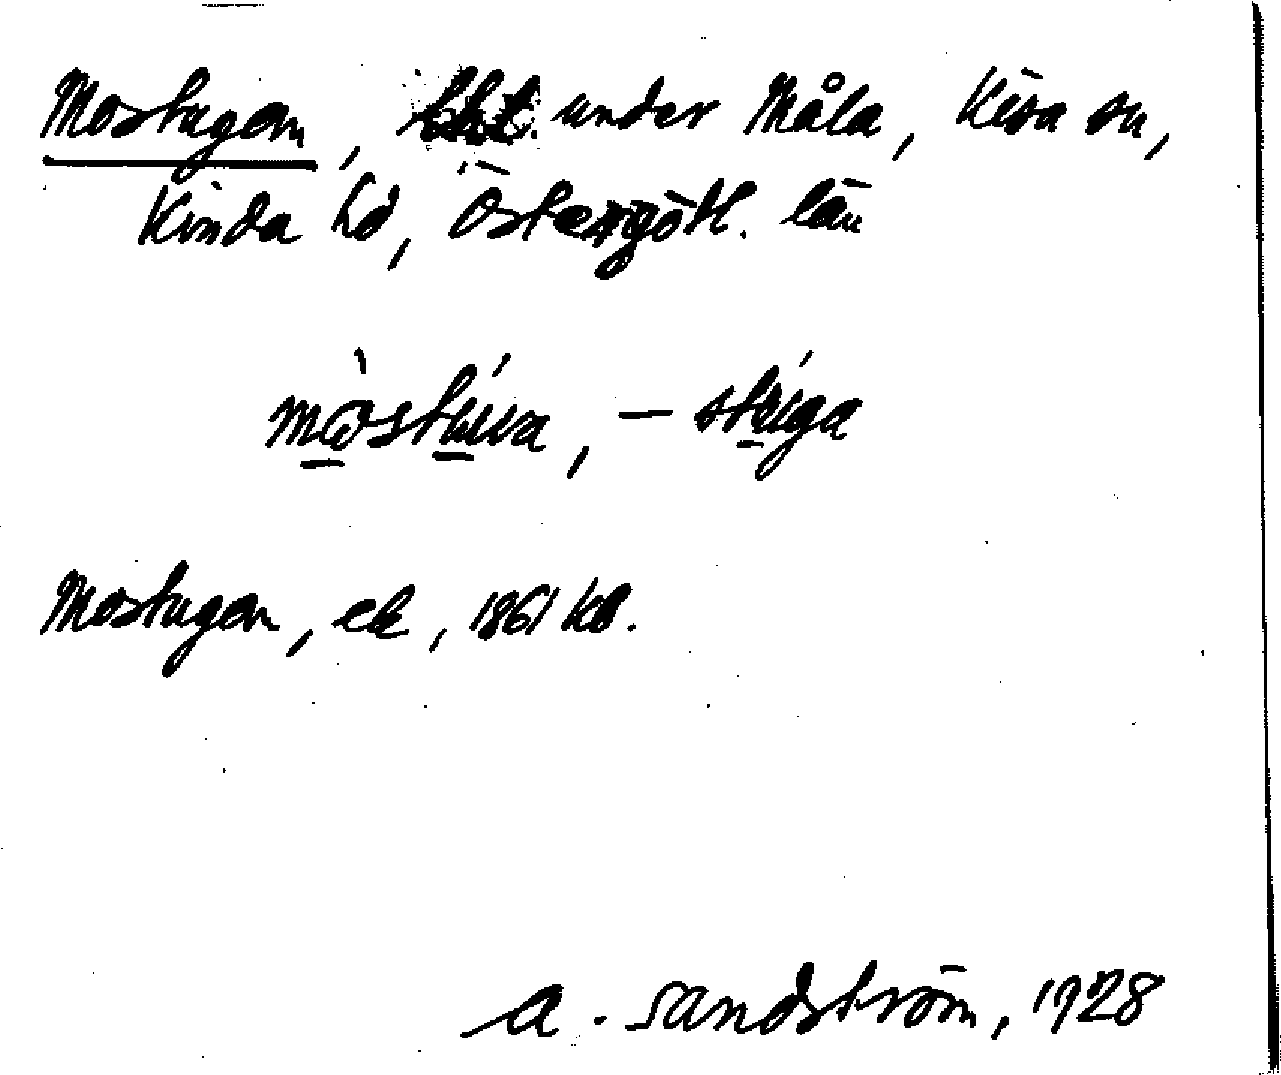 Mostugan, lht. under Måla, Kisa sn,
Kinda hd, Östergötl. län
mòstúwa, – stúga
Mostugan, ek, 1861 kb.
A. Sandström, 1928